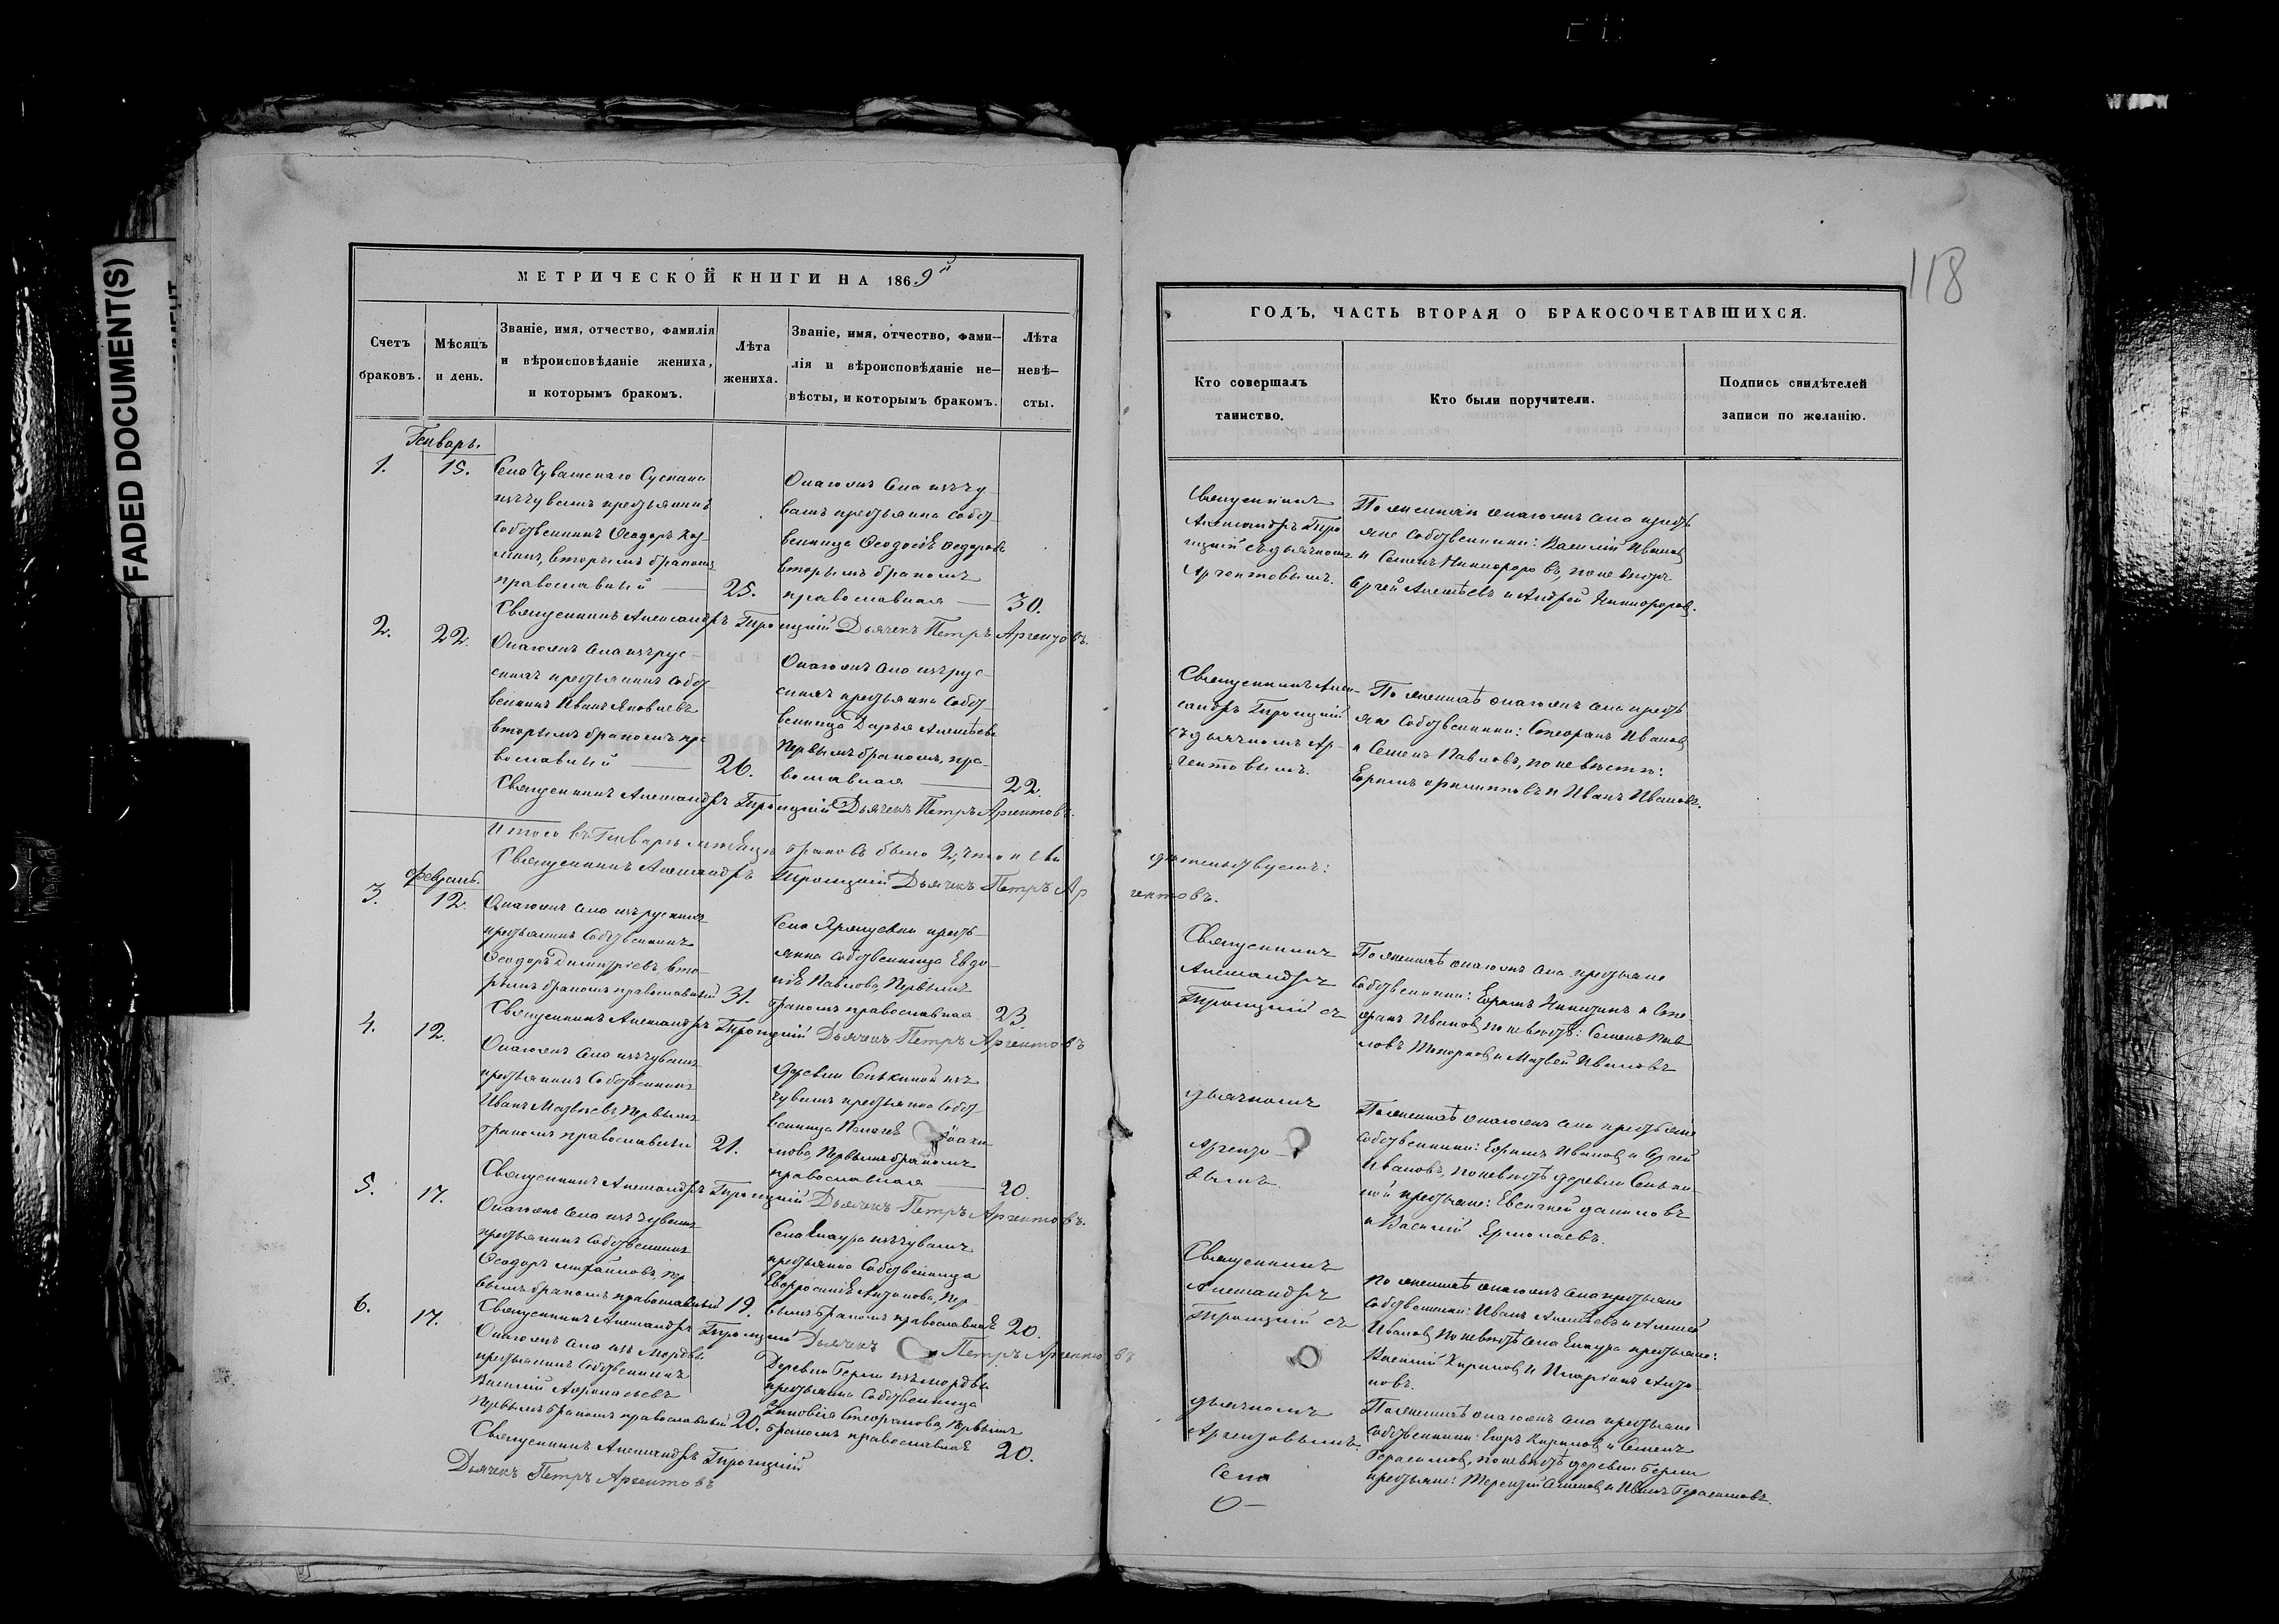 FADED DOCUMENT(S)
118
МЕТРИЧЕСКОЙ КНИГИ НА 1869й
Счетъ браковъ.
Мѣсяцъ и день.
Званіе, имя, отчество, фамилія
и вѣроисповѣданіе жениха,
и которымъ бракомъ.
Лѣта
жениха.
Званіе, имя, отчество, фами-
лія и вѣроисповѣданіе не-
вѣсты, и которымъ бракомъ.
Лѣта
невѣ-
сты.
Генварь.
1.
15.
Села Чувашскаго Сускана
изъ чувашъ крестьянинъ
собственникъ Ѳеодоръ Коз
минъ, вторымъ бракомъ
православный
25.
Онагожъ села изъ чу
вашъ крестьянка собст
венница Ѳеодосія Ѳедорова
вторымъ бракомъ
православная
30.
Священникъ Александръ Троицкій Дьячекъ Петръ Аргентовъ.
2.
22.
Онагожъ села изърус-
скихъ крестьянинъ собст
венникъ Иванъ Яковлевъ
вторымъ бракомъ пра
вославный
26.
Онагожъ села изъ рус-
скихъ крестьянка собст
венница Дарья Алексѣева
первымъ бракомъ, пра
вославная
22.
Священникъ Александръ Троицкій Дьячекъ Петръ Аргентовъ.
Итого въ Генварѣ мѣсяцѣ браковъ было 2, что и сви
Священникъ Александръ Троицкій Дьячекъ Петръ Ар
Февраль.
3.
12.
Онагожъ села изъ русскихъ
крестьянинъ собственникъ
Ѳеодоръ Димитріевъ, вто-
рымъ бракомъ православный
31.
Села крест-
янка собственница Евдо-
кія Павлова, первымъ
бракомъ православная
23
Священникъ Александръ Троицкій Дьячекъ Петръ Аргентовъ
4.
12.
Онагожъ села изъ чувашъ
крестьянинъ собственникъ
Иванъ Матвѣевъ, первымъ
бракомъ православный
21.
Деревни изъ
чувашъ крестьянка собст
венница Пелагея Іоаки
мова, первымъ бракомъ
православная
20.
Священникъ Александръ Троицкій Дьячекъ Петръ Аргентовъ.
5.
17.
Онагожъ села изъ чувашъ
крестьянинъ собственникъ
Ѳеодоръ Михайловъ, пер-
вымъ бракомъ православный
19.
Села Енаура изъ чувашъ
крестьянка собственница
Евфросинія Антонова, пер-
вымъ бракомъ православная
20.
Священникъ Александръ Троицкій Дьячекъ Петръ Аргентовъ
6.
17.
Онагожъ села изъ Мордвы
крестьянинъ собственникъ
Василій Аѳонасьевъ
первымъ бракомъ православный
20.
Деревни изъ мордвы
крестьянка собственница
Зиновія Стефанова, первымъ
бракомъ православная
20.
Священникъ Александръ Троицкій
Дьячекъ Петръ Аргентовъ
ГОДЪ, ЧАСТЬ ВТОРАЯ О БРАКОСОЧЕТАВШИХСЯ.
Кто совершалъ
таинство.
Кто были поручители.
Подпись свидѣтелей
записи по желанію.
Священникъ
Александръ Трои
цкій съ дьячкомъ
Аргентовымъ.
По женихѣ онагожъ села крестъ
яне собственники: Василій Ивановъ
и Семенъ Никифоровъ, по невѣстѣ
Сергѣй Алексѣевъ и Андрей Никифоровъ.
Священникъ Алек-
сандръ Троицкій
съ дьячкомъ Ар-
гентовымъ.
По женихѣ онагожъ села крестъ
яне собственники: Стефанъ Ивановъ
и Семенъ Павловъ, по невѣстѣ:
Ефимъ Филипповъ и Иванъ Ивановъ.
дѣтельствуемъ:
гентовъ.
Священникъ
Александръ
Троицкій съ
По женихѣ онагожъ села крестьяне
собственники: Ефимъ Никитинъ и Сте
фанъ Ивановъ, по невѣстѣ: Семенъ Пав
ловъ и Матвей Ивановъ
дьячкомъ
Аргенто
вымъ
По женихѣ онагожъ села крестьяне
собственники: Ефимъ Ивановъ и Сергѣй
Ивановъ, по невѣстѣ деревни
крестьяне: Евсигней Даниловъ
и Василій Ермолаевъ.
Священникъ
Александръ
Троицкій съ
По женихѣ онагожъ села крестьяне
собственники: Иванъ Алексѣевъ и Алексѣй
Ивановъ, по невѣстѣ села Енаура крестьяне:
Василій Кириловъ и Иларіонъ Анто-
новъ.
дьячкомъ
Аргентовымъ.
По женихѣ онагожъ села крестьяне
собственники: Егоръ Кириловъ и Семенъ
Герасимовъ, по невѣстѣ деревни
крестьяне: Терентій Семеновъ и Иванъ Герасимовъ.
Села